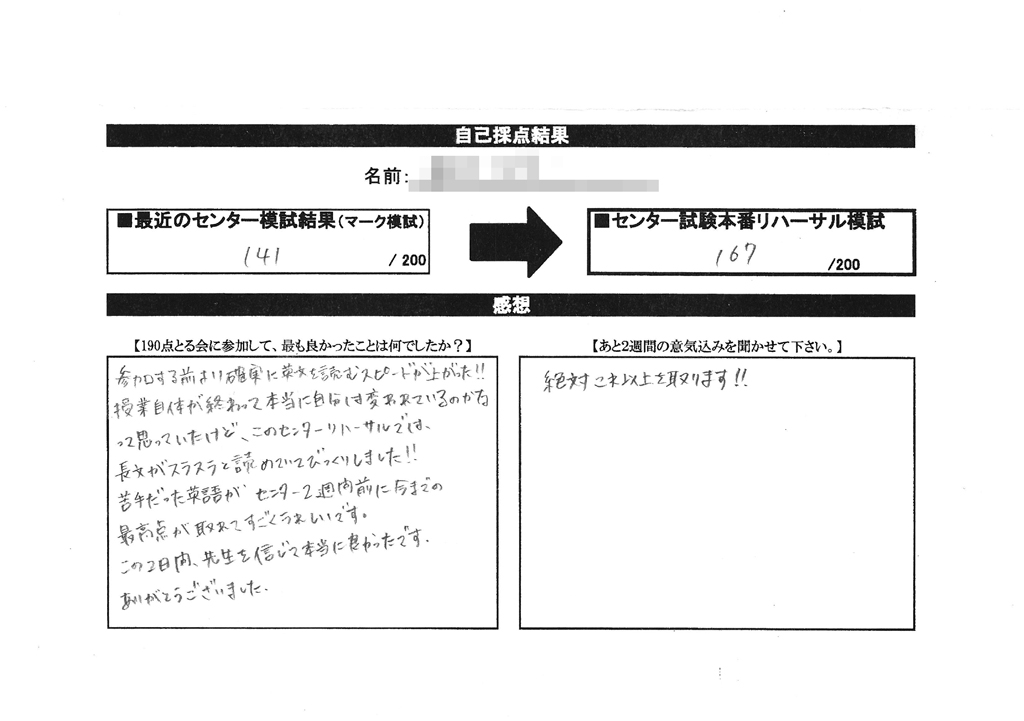 自己採点結果
名前:
■最近のセンター模試結果(マーク模試)
141 / 200
■センター試験本番リハーサル模試
167 /200
感想
【190点とる会に参加して、最も良かったことは何でしたか?】
参加する前より確実に英文を読むスピードが上がった!!
授業自体が終わって本当に自分は変われているのかな
って思っていたけど、このセンターリハーサルでは、
長文がスラスラと読めていてびっくりしました!!
苦手だった英語が センター2週間前に今までの
最高点が取れてすごくうれしいです。
この2日間、先生を信じて本当に良かったです.
ありがとうございました.
【あと2週間の意気込みを聞かせて下さい。】
絶対これ以上を取ります!!